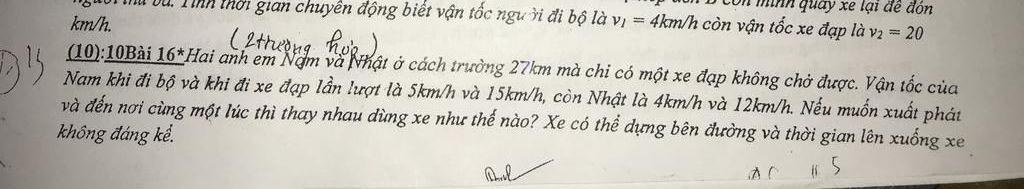 thời gian chuyển động biết vận tốc người đi bộ là v₁ = 4km/h còn vận tốc xe đạp là v₂ = 20
km/h.
(2 trường hợp)
(10):10Bài 16*Hai anh em Nam và Nhật ở cách trường 27km mà chỉ có một xe đạp không chở được. Vận tốc của
Nam khi đi bộ và khi đi xe đạp lần lượt là 5km/h và 15km/h, còn Nhật là 4km/h và 12km/h. Nếu muốn xuất phát
và đến nơi cùng một lúc thì thay nhau dùng xe như thế nào? Xe có thể dựng bên đường và thời gian lên xuống xe
không đáng kể.